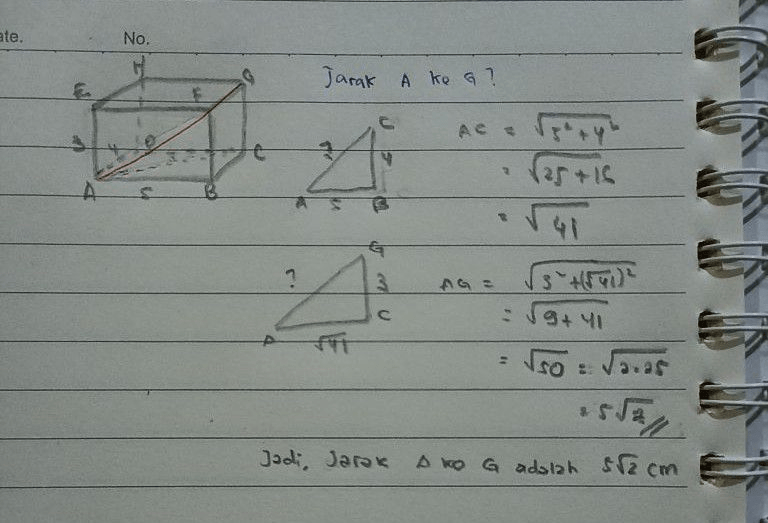 ate. No.
H
G
E F
3 4 D C
A 5 B
Jarak A ke G?
C
? 4
A 5 B
AC = √5²+4²
= √25+16
= √41
G
? 3
A C
√41
AG = √3²+(√41)²
= √9+41
= √50 = √2.25
= 5√2 //
Jadi, Jarak A ke G adalah 5√2 cm